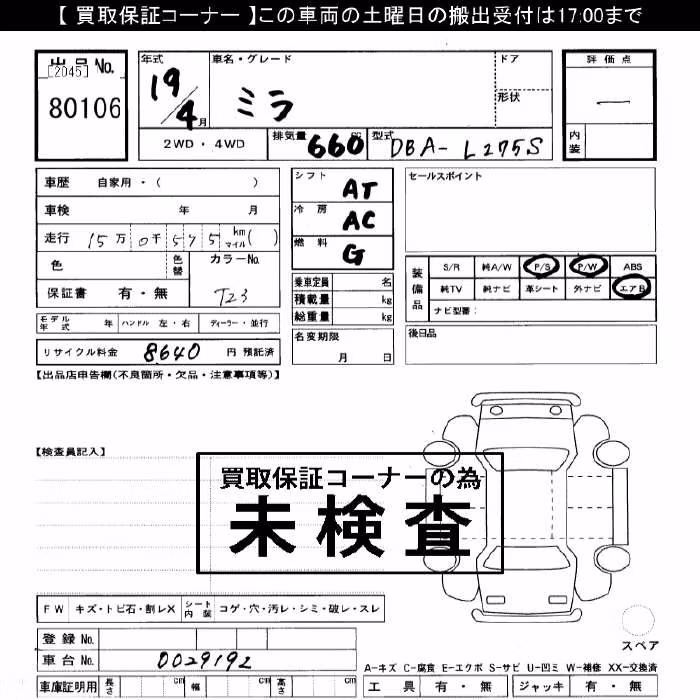 【 買取保証コーナー 】この車両の土曜日の搬出受付は17:00まで
出品No.
[2045]
80106
年式
19/4月
車名・グレード
ミラ
ドア
形状
評価点
—
内装
2WD・4WD
排気量 660 cc
型式 DBA-L275S
車歴 自家用・( )
車検 年 月
走行 15万0千575 km マイル( )
色
色替
カラーNo.
T23
保証書 有・無
モデル年式 年 ハンドル 左・右 ディーラー・並行
リサイクル料金 8640 円 預託済
シフト AT
冷房 AC
燃料 G
乗車定員 名
積載量 kg
総重量 kg
名変期限
月 日
セールスポイント
装備品
S/R 純A/W P/S P/W ABS
純TV 純ナビ 革シート 外ナビ エアB
ナビ型番:
後日品
【出品店申告欄(不良箇所・欠品・注意事項等)】
【検査員記入】
買取保証コーナーの為
未検査
FW キズ・トビ石・割レX シート内装 コゲ・穴・汚レ・シミ・破レ・スレ
登録No.
車台No. 0029192
車庫証明用 長さ cm 幅 cm 高さ cm
スペア
A-キズ C-腐食 E-エクボ S-サビ U-凹ミ W-補修 XX-交換済
工具 有・無 ジャッキ 有・無